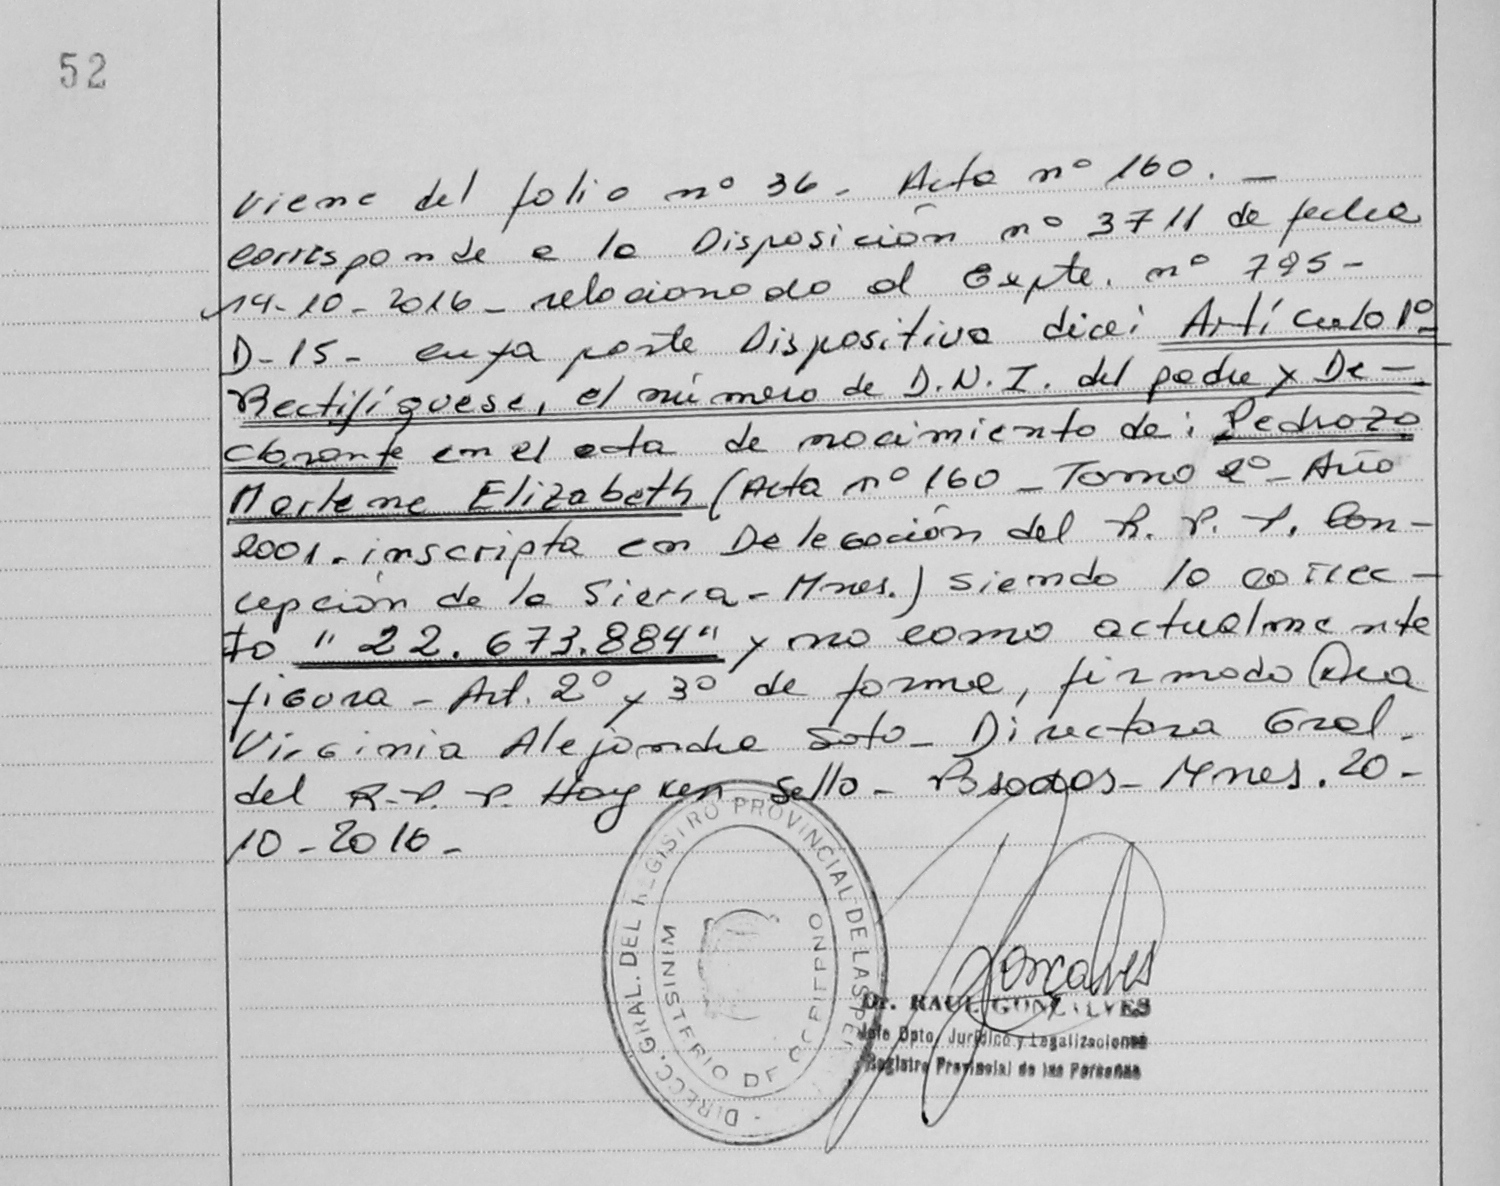 52
Viene del folio nº 36 - Acta nº 160. -
corresponde a la Disposición nº 3711 de fecha
14-10-2016 - relacionado al Expte. nº 795 -
D-15 - cuya parte Dispositiva dice: Artículo 1º
Rectifíquese, el número de D.N.I. del padre y De-
clarante en el acta de nacimiento de: Pedrozo
Marlene Elizabeth (Acta nº 160 - Tomo 2º - Año
2001 - inscripta en Delegación del R. P. P. Con-
cepción de la Sierra - Mnes.) siendo lo correc-
to "22.673.884" y no como actualmente
figura - Art. 2º y 3º de forma, firmado Dra
Virginia Alejandra Soto - Directora Gral.
del R. P. P. Hay un Sello - Psadas - Mnes. 20 -
10 - 2016 -
DIRECC. GRAL. DEL REGISTRO PROVINCIAL DE LAS PER
MINISTERIO DE GOBIERNO
Gonçalves
Dr. RAUL GONÇALVES
Jefe Dpto. Jurídico y Legalizaciones
Registro Provincial de las Personas